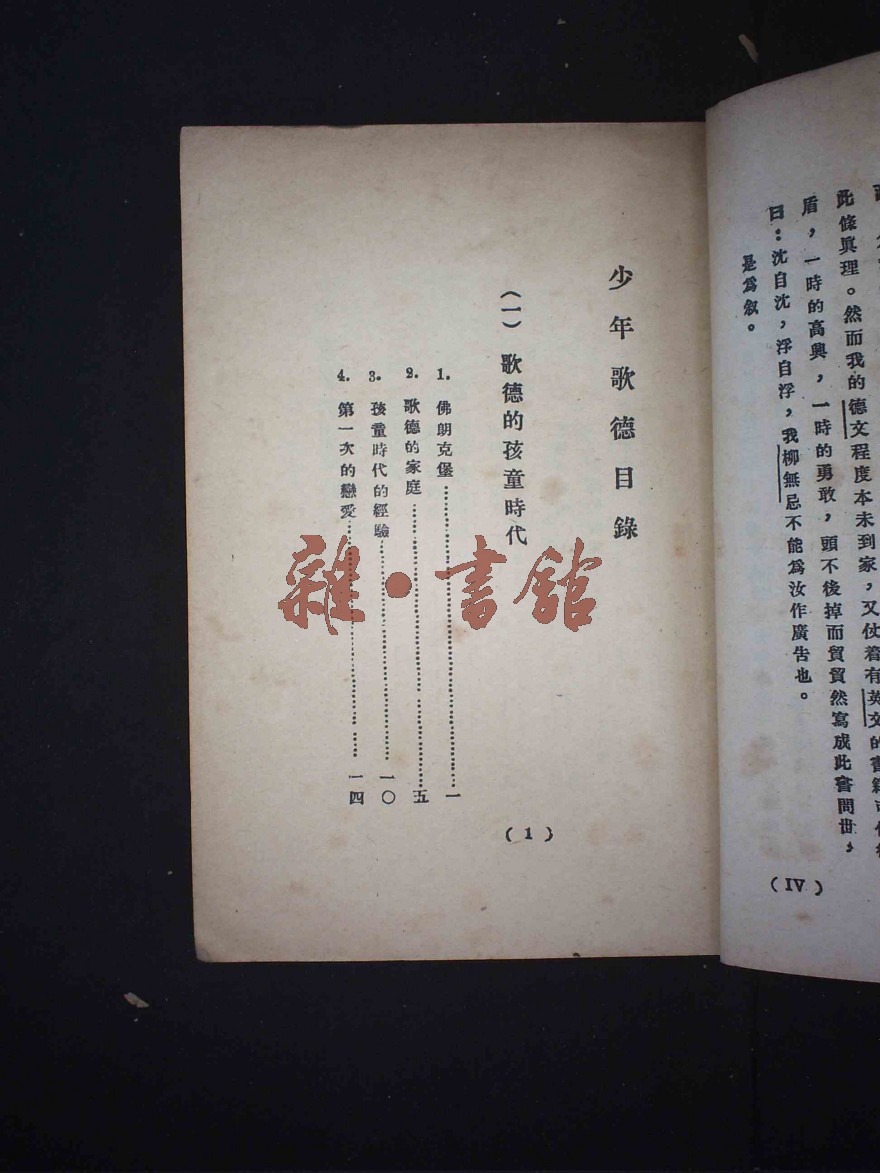 此條眞理。然而我的德文程度本未到家,又仗着有英文的書籍可
盾,一時的高興,一時的勇敢,頭不後掉而貿貿然寫成此書問世,
曰:沈自沈,浮自浮,我柳無忌不能爲汝作廣告也。
是爲叙。
(IV)
少年歌德目錄
(一) 歌德的孩童時代
1. 佛朗克堡……一
2. 歌德的家庭……五
3. 孩童時代的經驗……一〇
4. 第一次的戀愛……一四
(1)
雜·書館